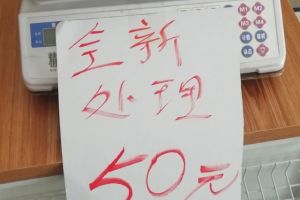 全新
处理
50元
M1
M2
M3
M4
M5